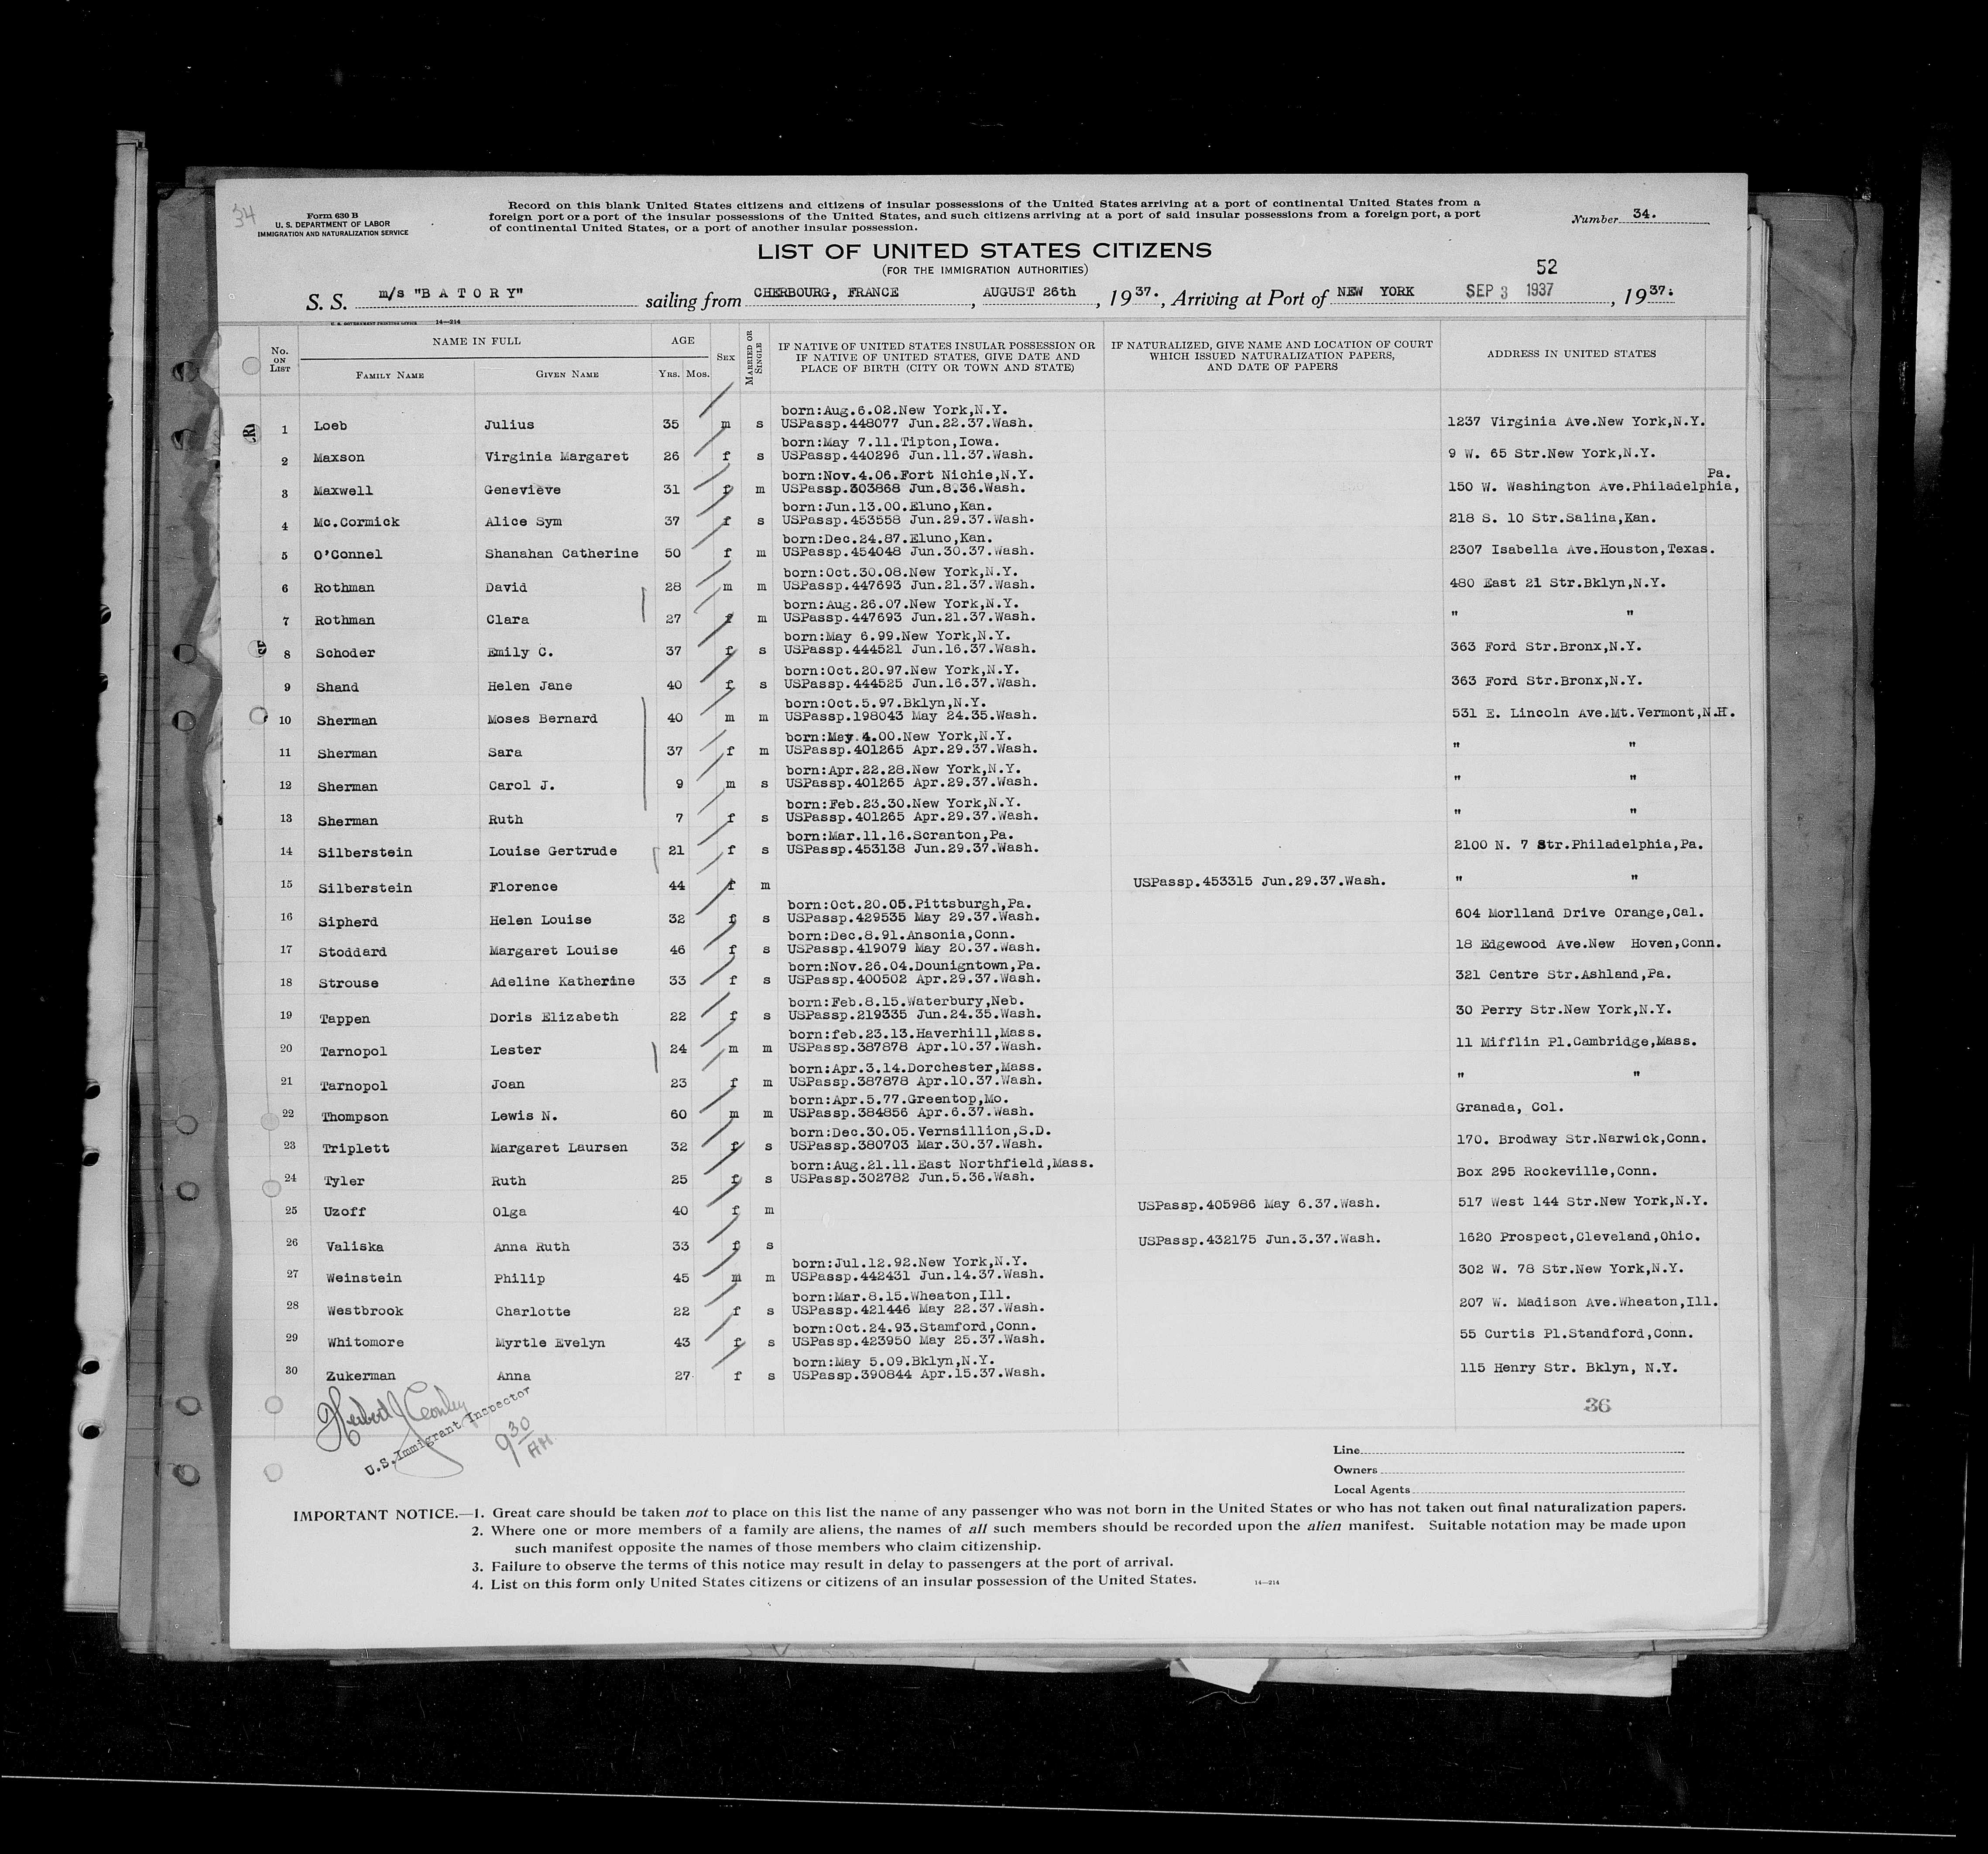 34
Form 630 B
U. S. DEPARTMENT OF LABOR
IMMIGRATION AND NATURALIZATION SERVICE
Record on this blank United States citizens and citizens of insular possessions of the United States arriving at a port of continental United States from a
foreign port or a port of the insular possessions of the United States, and such citizens arriving at a port of said insular possessions from a foreign port, a port
of continental United States, or a port of another insular possession.
Number 34.
LIST OF UNITED STATES CITIZENS
(FOR THE IMMIGRATION AUTHORITIES)
52
S. S. m/s "B A T O R Y" sailing from CHERBOURG, FRANCE, AUGUST 26th, 1937., Arriving at Port of NEW YORK SEP 3 1937, 1937.
U. S. GOVERNMENT PRINTING OFFICE 14—214
No. ON LIST
NAME IN FULL
FAMILY NAME
GIVEN NAME
AGE
YRS. MOS.
SEX
MARRIED OR SINGLE
IF NATIVE OF UNITED STATES INSULAR POSSESSION OR
IF NATIVE OF UNITED STATES, GIVE DATE AND
PLACE OF BIRTH (CITY OR TOWN AND STATE)
IF NATURALIZED, GIVE NAME AND LOCATION OF COURT
WHICH ISSUED NATURALIZATION PAPERS,
AND DATE OF PAPERS
ADDRESS IN UNITED STATES
born:Aug.6.02.New York,N.Y.
1 Loeb Julius 35 m s USPassp.448077 Jun.22.37.Wash. 1237 Virginia Ave.New York,N.Y.
born:May 7.11.Tipton,Iowa.
2 Maxson Virginia Margaret 26 f s USPassp.440296 Jun.11.37.Wash. 9 W. 65 Str.New York,N.Y.
born:Nov.4.06.Fort Nichie,N.Y. Pa.
3 Maxwell Genevieve 31 f m USPassp.303868 Jun.8.36.Wash. 150 W. Washington Ave.Philadelphia,
born:Jun.13.00.Eluno,Kan.
4 Mc.Cormick Alice Sym 37 f s USPassp.453558 Jun.29.37.Wash. 218 S. 10 Str.Salina,Kan.
born:Dec.24.87.Eluno,Kan.
5 O'Connel Shanahan Catherine 50 f m USPassp.454048 Jun.30.37.Wash. 2307 Isabella Ave.Houston,Texas.
born:Oct.30.08.New York,N.Y.
6 Rothman David 28 m m USPassp.447693 Jun.21.37.Wash. 480 East 21 Str.Bklyn,N.Y.
born:Aug.26.07.New York,N.Y.
7 Rothman Clara 27 f m USPassp.447693 Jun.21.37.Wash. " "
born:May 6.99.New York,N.Y.
8 Schoder Emily C. 37 f s USPassp.444521 Jun.16.37.Wash. 363 Ford Str.Bronx,N.Y.
born:Oct.20.97.New York,N.Y.
9 Shand Helen Jane 40 f s USPassp.444525 Jun.16.37.Wash. 363 Ford Str.Bronx,N.Y.
born:Oct.5.97.Bklyn,N.Y.
10 Sherman Moses Bernard 40 m m USPassp.198043 May 24.35.Wash. 531 E. Lincoln Ave.Mt.Vermont,N.H.
born:May.4.00.New York,N.Y.
11 Sherman Sara 37 f m USPassp.401265 Apr.29.37.Wash. " "
born:Apr.22.28.New York,N.Y.
12 Sherman Carol J. 9 m s USPassp.401265 Apr.29.37.Wash. " "
born:Feb.23.30.New York,N.Y.
13 Sherman Ruth 7 f s USPassp.401265 Apr.29.37.Wash. " "
born:Mar.11.16.Scranton,Pa.
14 Silberstein Louise Gertrude 21 f s USPassp.453138 Jun.29.37.Wash. 2100 N. 7 Str.Philadelphia,Pa.
15 Silberstein Florence 44 f m USPassp.453315 Jun.29.37.Wash. " "
born:Oct.20.05.Pittsburgh,Pa.
16 Sipherd Helen Louise 32 f s USPassp.429535 May 29.37.Wash. 604 Morlland Drive Orange,Cal.
born:Dec.8.91.Ansonia,Conn.
17 Stoddard Margaret Louise 46 f s USPassp.419079 May 20.37.Wash. 18 Edgewood Ave.New Hoven,Conn.
born:Nov.26.04.Dounigntown,Pa.
18 Strouse Adeline Katherine 33 f s USPassp.400502 Apr.29.37.Wash. 321 Centre Str.Ashland,Pa.
born:Feb.8.15.Waterbury,Neb.
19 Tappen Doris Elizabeth 22 f s USPassp.219335 Jun.24.35.Wash. 30 Perry Str.New York,N.Y.
born:feb.23.13.Haverhill,Mass.
20 Tarnopol Lester 24 m m USPassp.387878 Apr.10.37.Wash. 11 Mifflin Pl.Cambridge,Mass.
born:Apr.3.14.Dorchester,Mass.
21 Tarnopol Joan 23 f m USPassp.387878 Apr.10.37.Wash. " "
born:Apr.5.77.Greentop,Mo.
22 Thompson Lewis N. 60 m m USPassp.384856 Apr.6.37.Wash. Granada, Col.
born:Dec.30.05.Vernsillion,S.D.
23 Triplett Margaret Laursen 32 f s USPassp.380703 Mar.30.37.Wash. 170. Brodway Str.Narwick,Conn.
born:Aug.21.11.East Northfield,Mass.
24 Tyler Ruth 25 f s USPassp.302782 Jun.5.36.Wash. Box 295 Rockeville,Conn.
25 Uzoff Olga 40 f m USPassp.405986 May 6.37.Wash. 517 West 144 Str.New York,N.Y.
26 Valiska Anna Ruth 33 f s USPassp.432175 Jun.3.37.Wash. 1620 Prospect,Cleveland,Ohio.
born:Jul.12.92.New York,N.Y.
27 Weinstein Philip 45 m m USPassp.442431 Jun.14.37.Wash. 302 W. 78 Str.New York,N.Y.
born:Mar.8.15.Wheaton,Ill.
28 Westbrook Charlotte 22 f s USPassp.421446 May 22.37.Wash. 207 W. Madison Ave.Wheaton,Ill.
born:Oct.24.93.Stamford,Conn.
29 Whitomore Myrtle Evelyn 43 f s USPassp.423950 May 25.37.Wash. 55 Curtis Pl.Standford,Conn.
born:May 5.09.Bklyn,N.Y.
30 Zukerman Anna 27 f s USPassp.390844 Apr.15.37.Wash. 115 Henry Str. Bklyn, N.Y.
36
U.S. Immigrant Inspector
9 30 AM.
Line
Owners
Local Agents
IMPORTANT NOTICE.—1. Great care should be taken not to place on this list the name of any passenger who was not born in the United States or who has not taken out final naturalization papers.
2. Where one or more members of a family are aliens, the names of all such members should be recorded upon the alien manifest. Suitable notation may be made upon
such manifest opposite the names of those members who claim citizenship.
3. Failure to observe the terms of this notice may result in delay to passengers at the port of arrival.
4. List on this form only United States citizens or citizens of an insular possession of the United States. 14—214